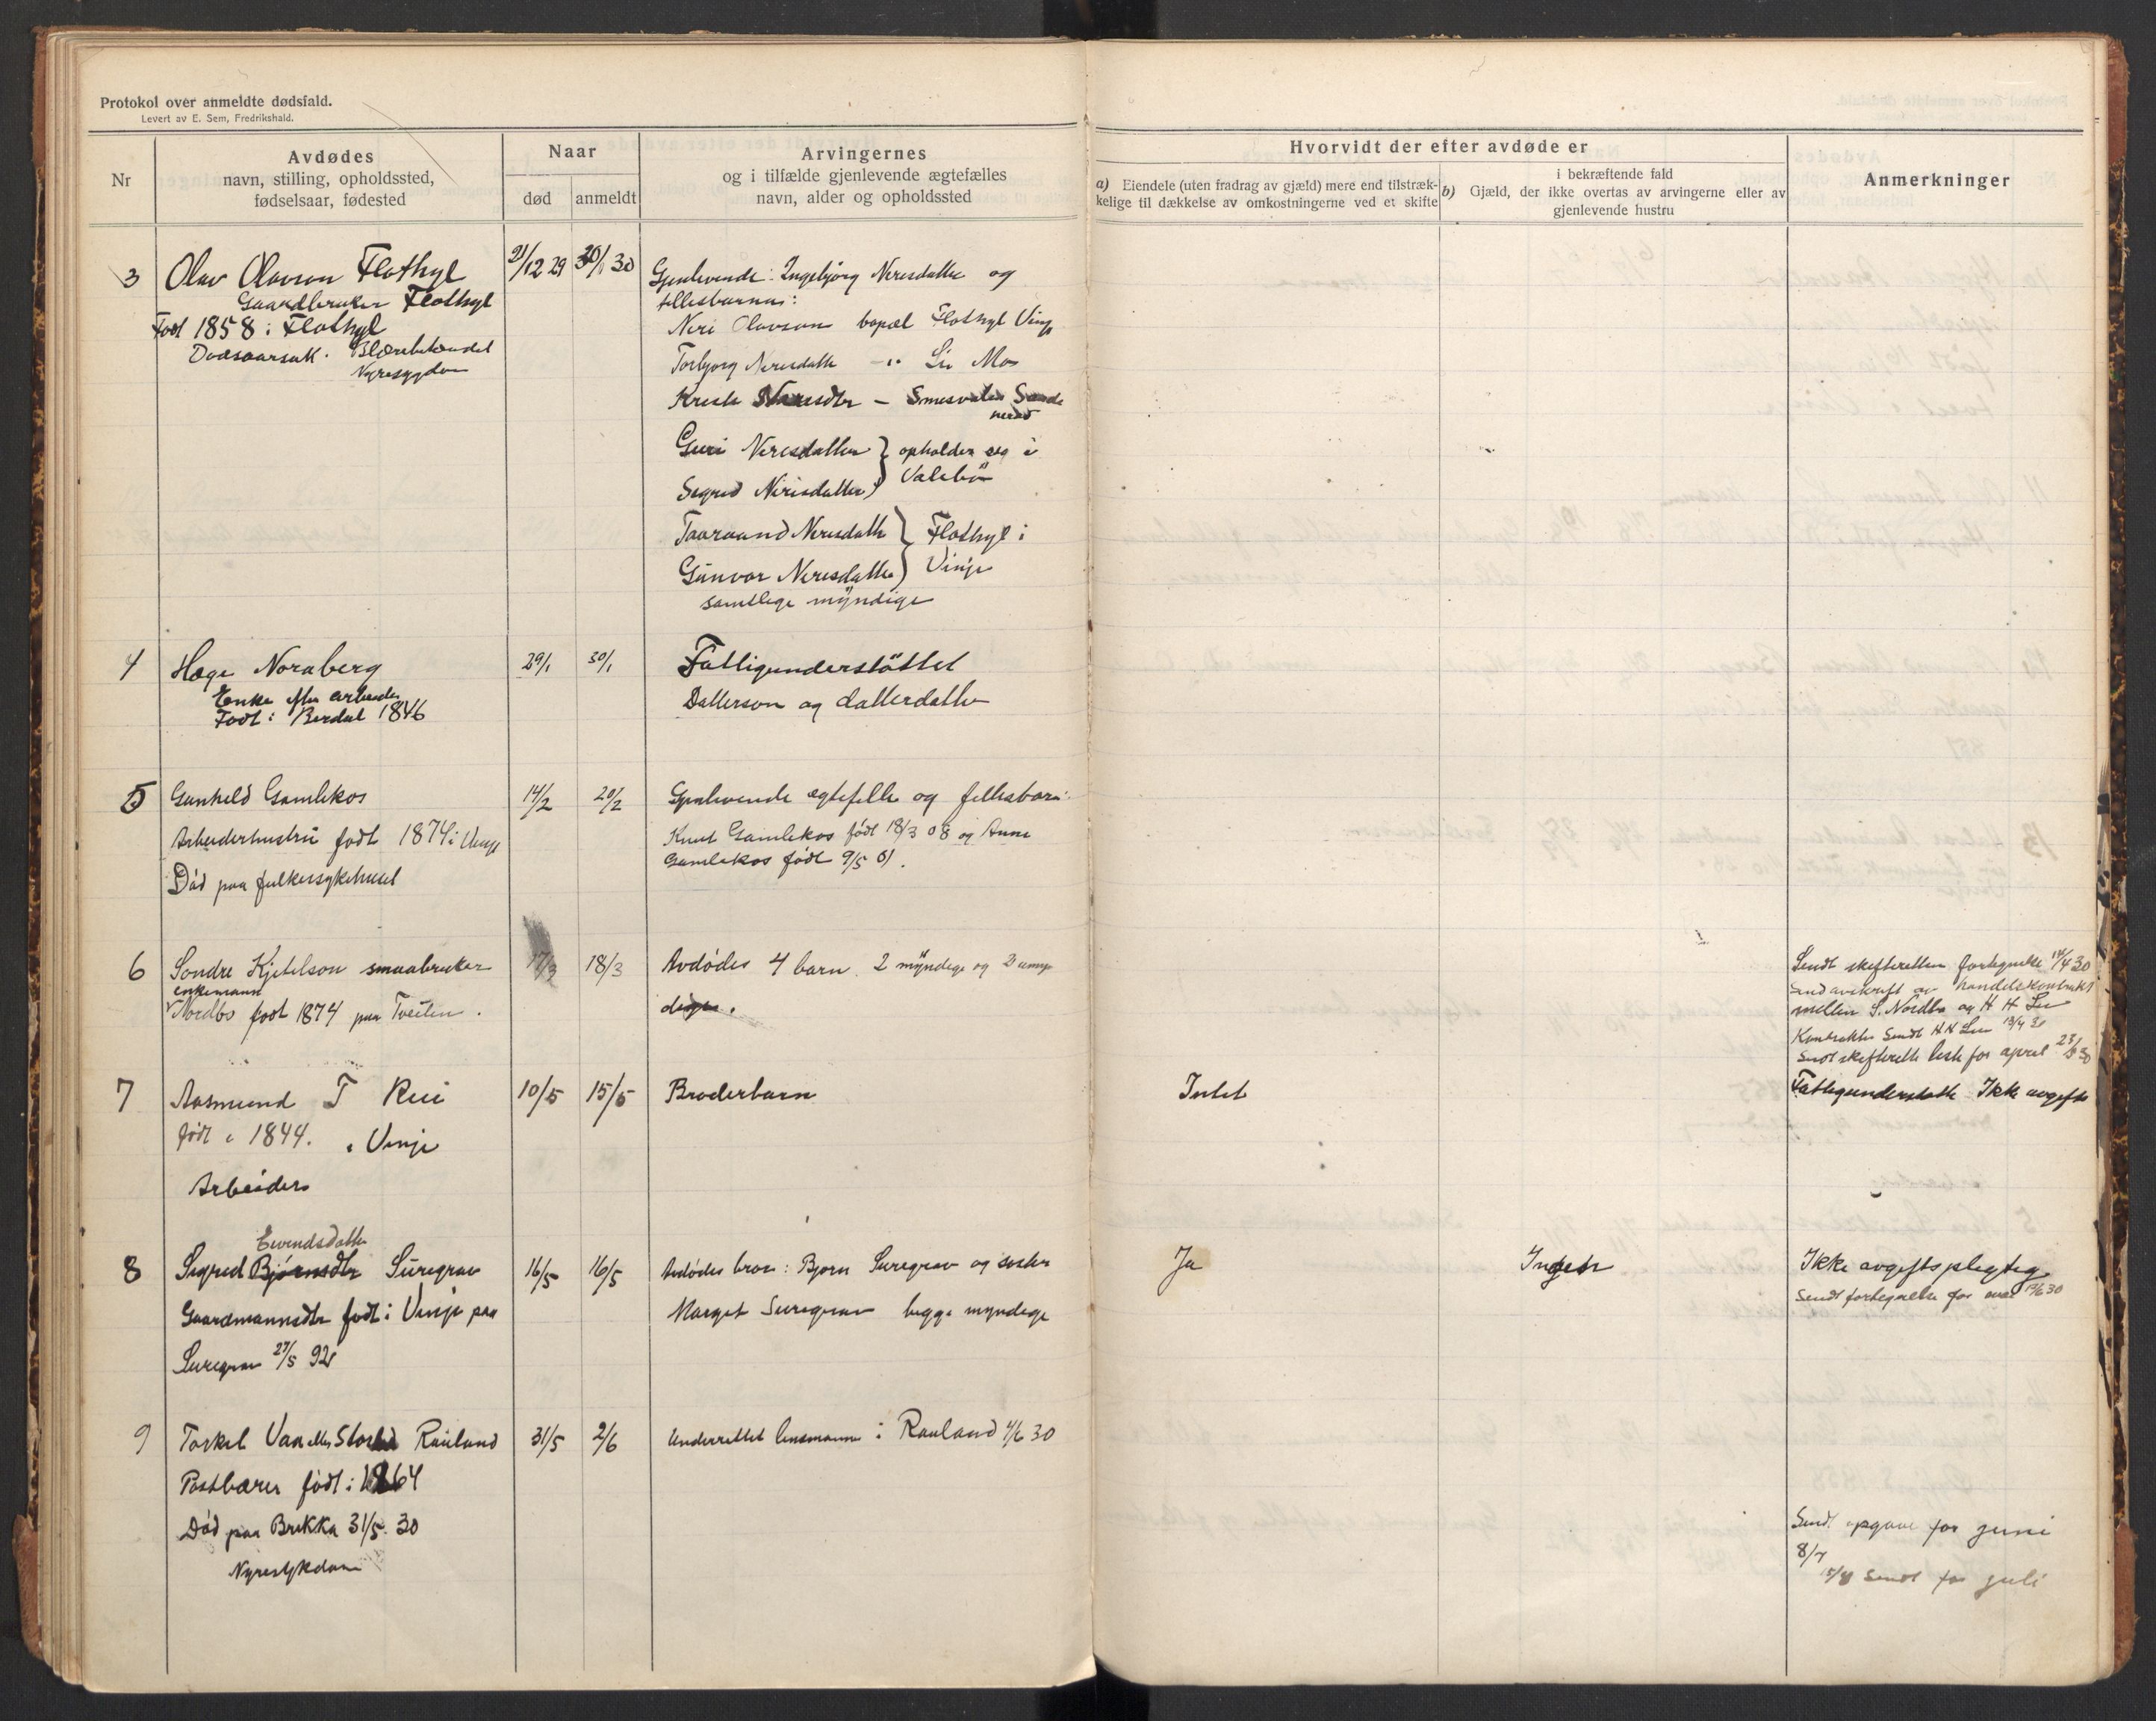 Protokol over anmeldte dødsfald.
Levert av E. Sem, Fredrikshald.
Nr
Avdødes
navn, stilling, opholdssted,
fødselsaar, fødested
Naar
død
anmeldt
Arvingernes
og i tilfælde gjenlevende ægtefælles
navn, alder og opholdssted
Hvorvidt der efter avdøde er
a) Eiendele (uten fradrag av gjæld) mere end tilstræk-
kelige til dækkelse av omkostningerne ved et skifte
i bekræftende fald
b) Gjæld, der ikke overtas av arvingerne eller av
gjenlevende hustru
Anmerkninger
3 Olav Olavson Flothyl 21/12 29 30/1 30
Gaardbruker Flothyl
Født 1858 i Flothyl
Dødsaarsak. Blærebetændel
Nyresygdom
Gjenlevende: Ingebjörg Nerisdatter og
fellesbarnas:
Neri Olavson bopæl Flothyl Vinje
Torbjorg Nerisdatter -"- Li Mo
Nerisdtr -
Guri Nerisdatter } opholder seg i
Sigrid Nerisdatter } Valebö
Taaraand Nerisdatter } Flothyl i
Gunvor Nerisdatter } Vinje
samtlige myndige
4 Hæge Noraberg 29/1 30/1 Fattigunderstöttet
Enke efter arbeider
Født i Berdal 1846
Datterson og datterdatter
5 Gunhild Gamlekos 14/2 20/2 Gjenlevende ægtefelle og fellesbarn:
Arbeiderhustru født 1874 i Vinje
Död paa fylkessykehuset
Knut Gamlekos född 18/3 08 og Anne
Gamlekos född 9/5 01.
6 Sondre Kjetelson smaabruker 17/3 18/3 Avdödes 4 barn. 2 myndige og 2 umyn
enkemann
Nordbö født 1874 paa Tveiten.
dige.
Sendt skifteretten fortegnelse 14/4 30
Send avskrift av handelskontrakt
mellem S. Nordbö og H H Lie
Kontrakten Sendt H H Lie
Sendt skifterett liste for april
7 Aasmund T Rui 10/5 15/5 Broderbarn Intet Fattigunderstøtte Ikke avgifts
född i 1844. i Vinje
Arbeider
Eivindsdatter
8 Sigrid Bjørnsdtr Suregrav 16/5 16/5 Avdödes bror: Bjorn Suregrav og søster Ja Ingen Ikke avgiftspligtig
Gaardmannsdtr født i Vinje paa
Suregrav 27/5 92
Marget Suregrav begge myndige
Sendt fortegnelse for mai
9 Torkel Vaa eller Rauland 31/5 2/6 Underrettet lensmann i Rauland 4/6 30
Postbærer född i 1864
Död paa Brekka 31/5 30
Nyresykdom
Sendt opgave for juni
8/7
15/8 Sendt for juli